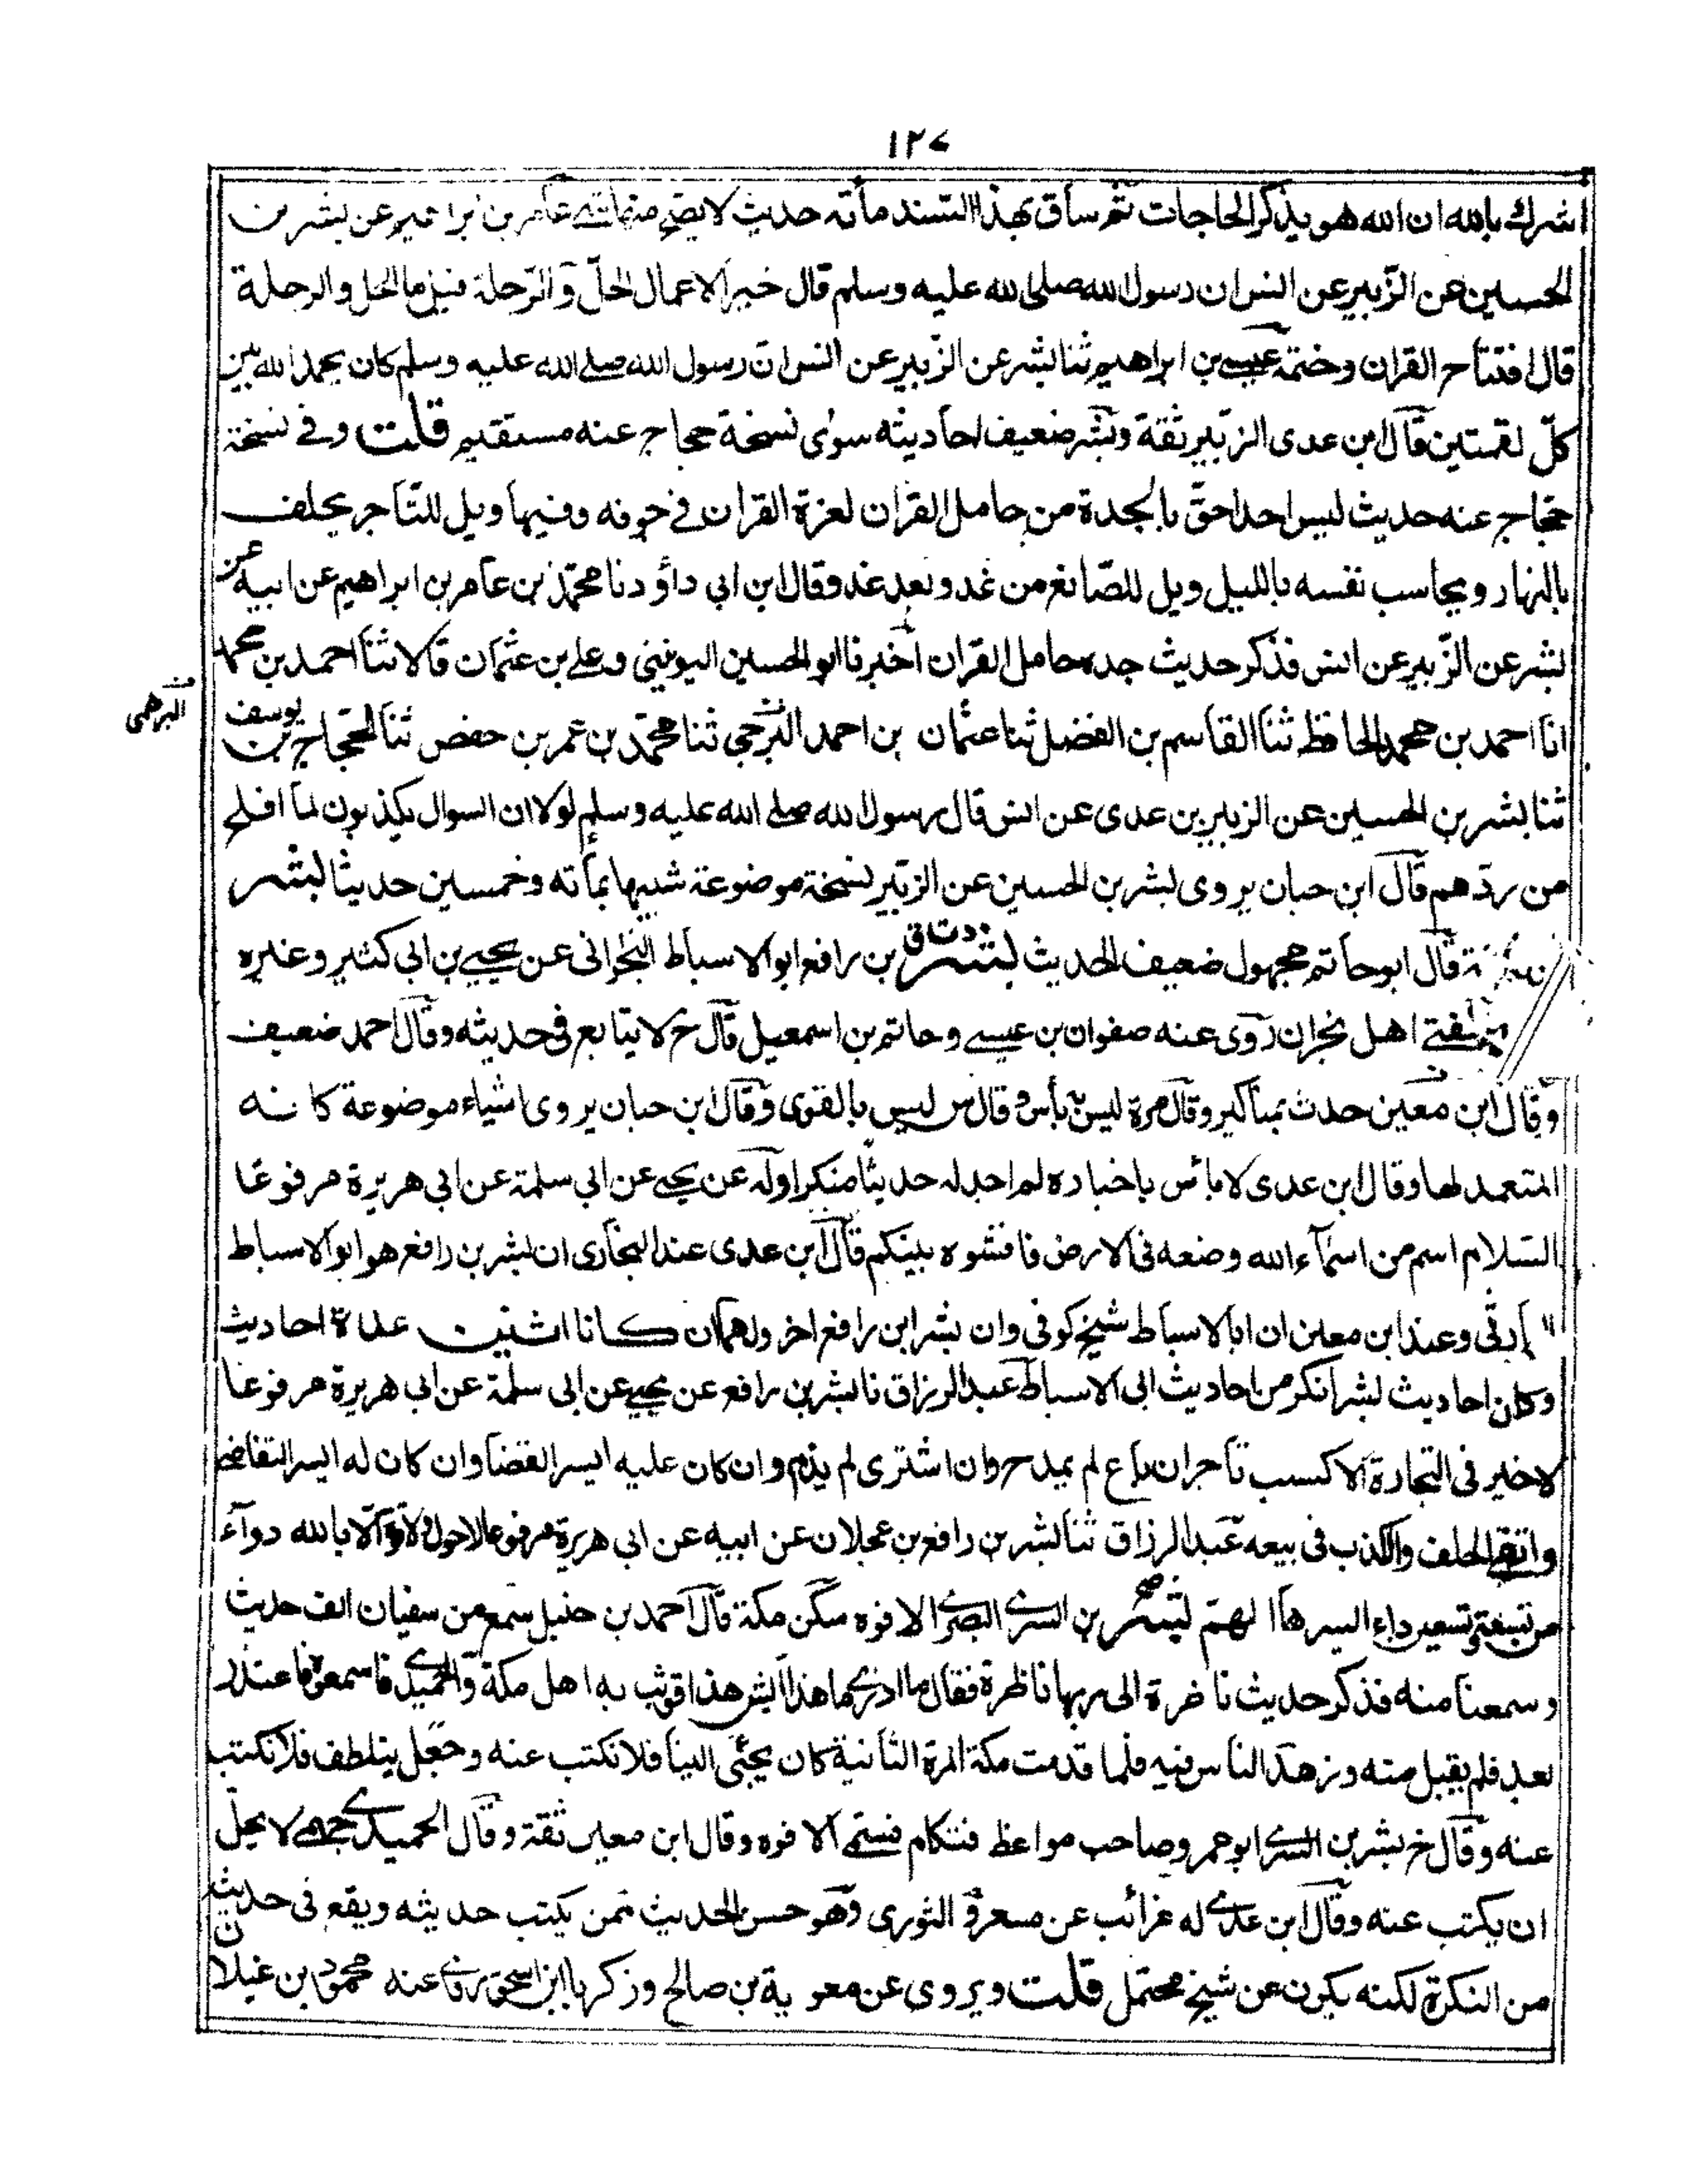 ١٢٧
اشرك بالله ان الله هو يذكر الحاجات ثم ساق بهذا السند مأته حديث لا يصح منها شے عامر بن ابراهيم عن بشر بن
الحسين عن الزبير عن انس ان رسول الله صلى لله عليه وسلم قال خير الاعمال الحلّ والرّحلة قيل ما الحل والرحلة
قال افتتاح القران وختمة عيسے بن ابراهيم ثنا بشر عن الزبير عن انس ان رسول الله صلے الله عليه وسلم كان يحمد الله بين
كلّ لقمتين قال ابن عدى الزبير ثقة وبشر ضعيف احاديثه سوى نسخة حجاج عنه مستقيم قلت وفے نسخة
حجاج عنه حديث ليس احد احقّ بالجدة من حامل القران لعزة القران فى جوفه وفيها ويل للتاجر يحلف
بالنهار ويحاسب نفسه بالليل ويل للصّانع من غد وبعد غد وقال ابن ابي داؤد نا محمّد بن عامر بن ابراهيم عن ابيه عن
بشر عن الزبير عن انس فذكر حديث جده حامل القران اخبرنا ابو الحسين اليونينى وعلے بن عثمان قالا ثنا احمد بن محمد
انا احمد بن محمد الحافظ ثنا القاسم بن الفضل ثنا عثمان بن احمد البرجى ثنا محمّد بن عمر بن حفص ثنا الحجاج بن يوسف
البرجمى
ثنا بشر بن الحسين عن الزبير بن عدى عن انس قال رسول لله صلے الله عليه وسلم لولا ان السوال يكذبون لما افلح
من ردّهم قال ابن حبان يروى بشر بن الحسين عن الزبير نسخة موضوعة شبيها بمأته وخمسين حديثا بشر
بن قال ابو حاتم مجهول ضعيف الحديث بشر دت ق بن رافع ابو الاسباط النجرانى عن يحيے بن ابى كثير وغيره
مفتے اهل نجران روى عنه صفوان بن عيسے وحاتم بن اسمعيل قال خ لا يتابع فى حديثه وقال احمد ضعيف
وقال ابن معين حدث بمناكير وقال مرة ليس به بأس وقال س ليس بالقوى وقال ابن حبان يروى اشياء موضوعة كانه
المتعمد لها وقال ابن عدى لا بأس باخباره لم اجد له حديثا منكرا وله عن يحيے عن ابي سلمة عن ابى هريرة مرفوعا
السّلام اسم من اسماء الله وضعه فى الارض فافشوه بينكم قال ابن عدى عند البخارى ان بشر بن رافع هو ابو الاسباط
وعند ابن معين ان ابا الاسباط شيخ كوفى وان بشر ابن رافع اخر ولهما ان كانا اثنين عدة احاديث
وكان احاديث بشر انكر من احاديث ابى الاسباط عبد الرزاق نا بشر بن رافع عن يحيے عن ابى سلمة عن ابي هريرة مرفوعا
لا خير فى التجارة الا كسب تاجر ان باع لم يمدح وان اشترى لم يذم وان كان عليه ايسر القضا وان كان له ايسر التقاضے
واتقے الحلف والكذب فى بيعه عبد الرزاق ثنا بشر بن رافع بن عجلان عن ابيه عن ابي هريرة مرفوعا لاحول ولا قوة الا بالله دواء
من تسعة وتسعين داء ايسرها الهم بشر بن السرے البصرے الافوه سكن مكة قال احمد بن حنبل سمع من سفيان الف حديث
وسمعنا منه فذكر حديث ناضرة الى ربها ناظرة فقال ما ادرے ما هذا ايش هذا فوثب به اهل مكة والحميدے فاسمعوه فاعتذر
بعد فلم يقبل منه وزهد الناس فيه فلما قدمت مكة المرة الثانية كان يجئى الينا فلا نكتب عنه وجعل يتلطف فلا نكتب
عنه وقال خ بشر بن السرے ابو عمرو صاحب مواعظ فتكلم فسمے الافوه وقال ابن معين ثقة وقال الحميدے جهمے لا يحلّ
ان يكتب عنه وقال ابن عدے له غرائب عن مسعر و الثورى وهو حسن الحديث ممن يكتب حديثه ويقع فى حديثه
من النكرة لكنه يكون عن شيخ محتمل قلت ويروى عن معوية بن صالح وزكريا ابن اسحق روى عنه محمود بن غيلان